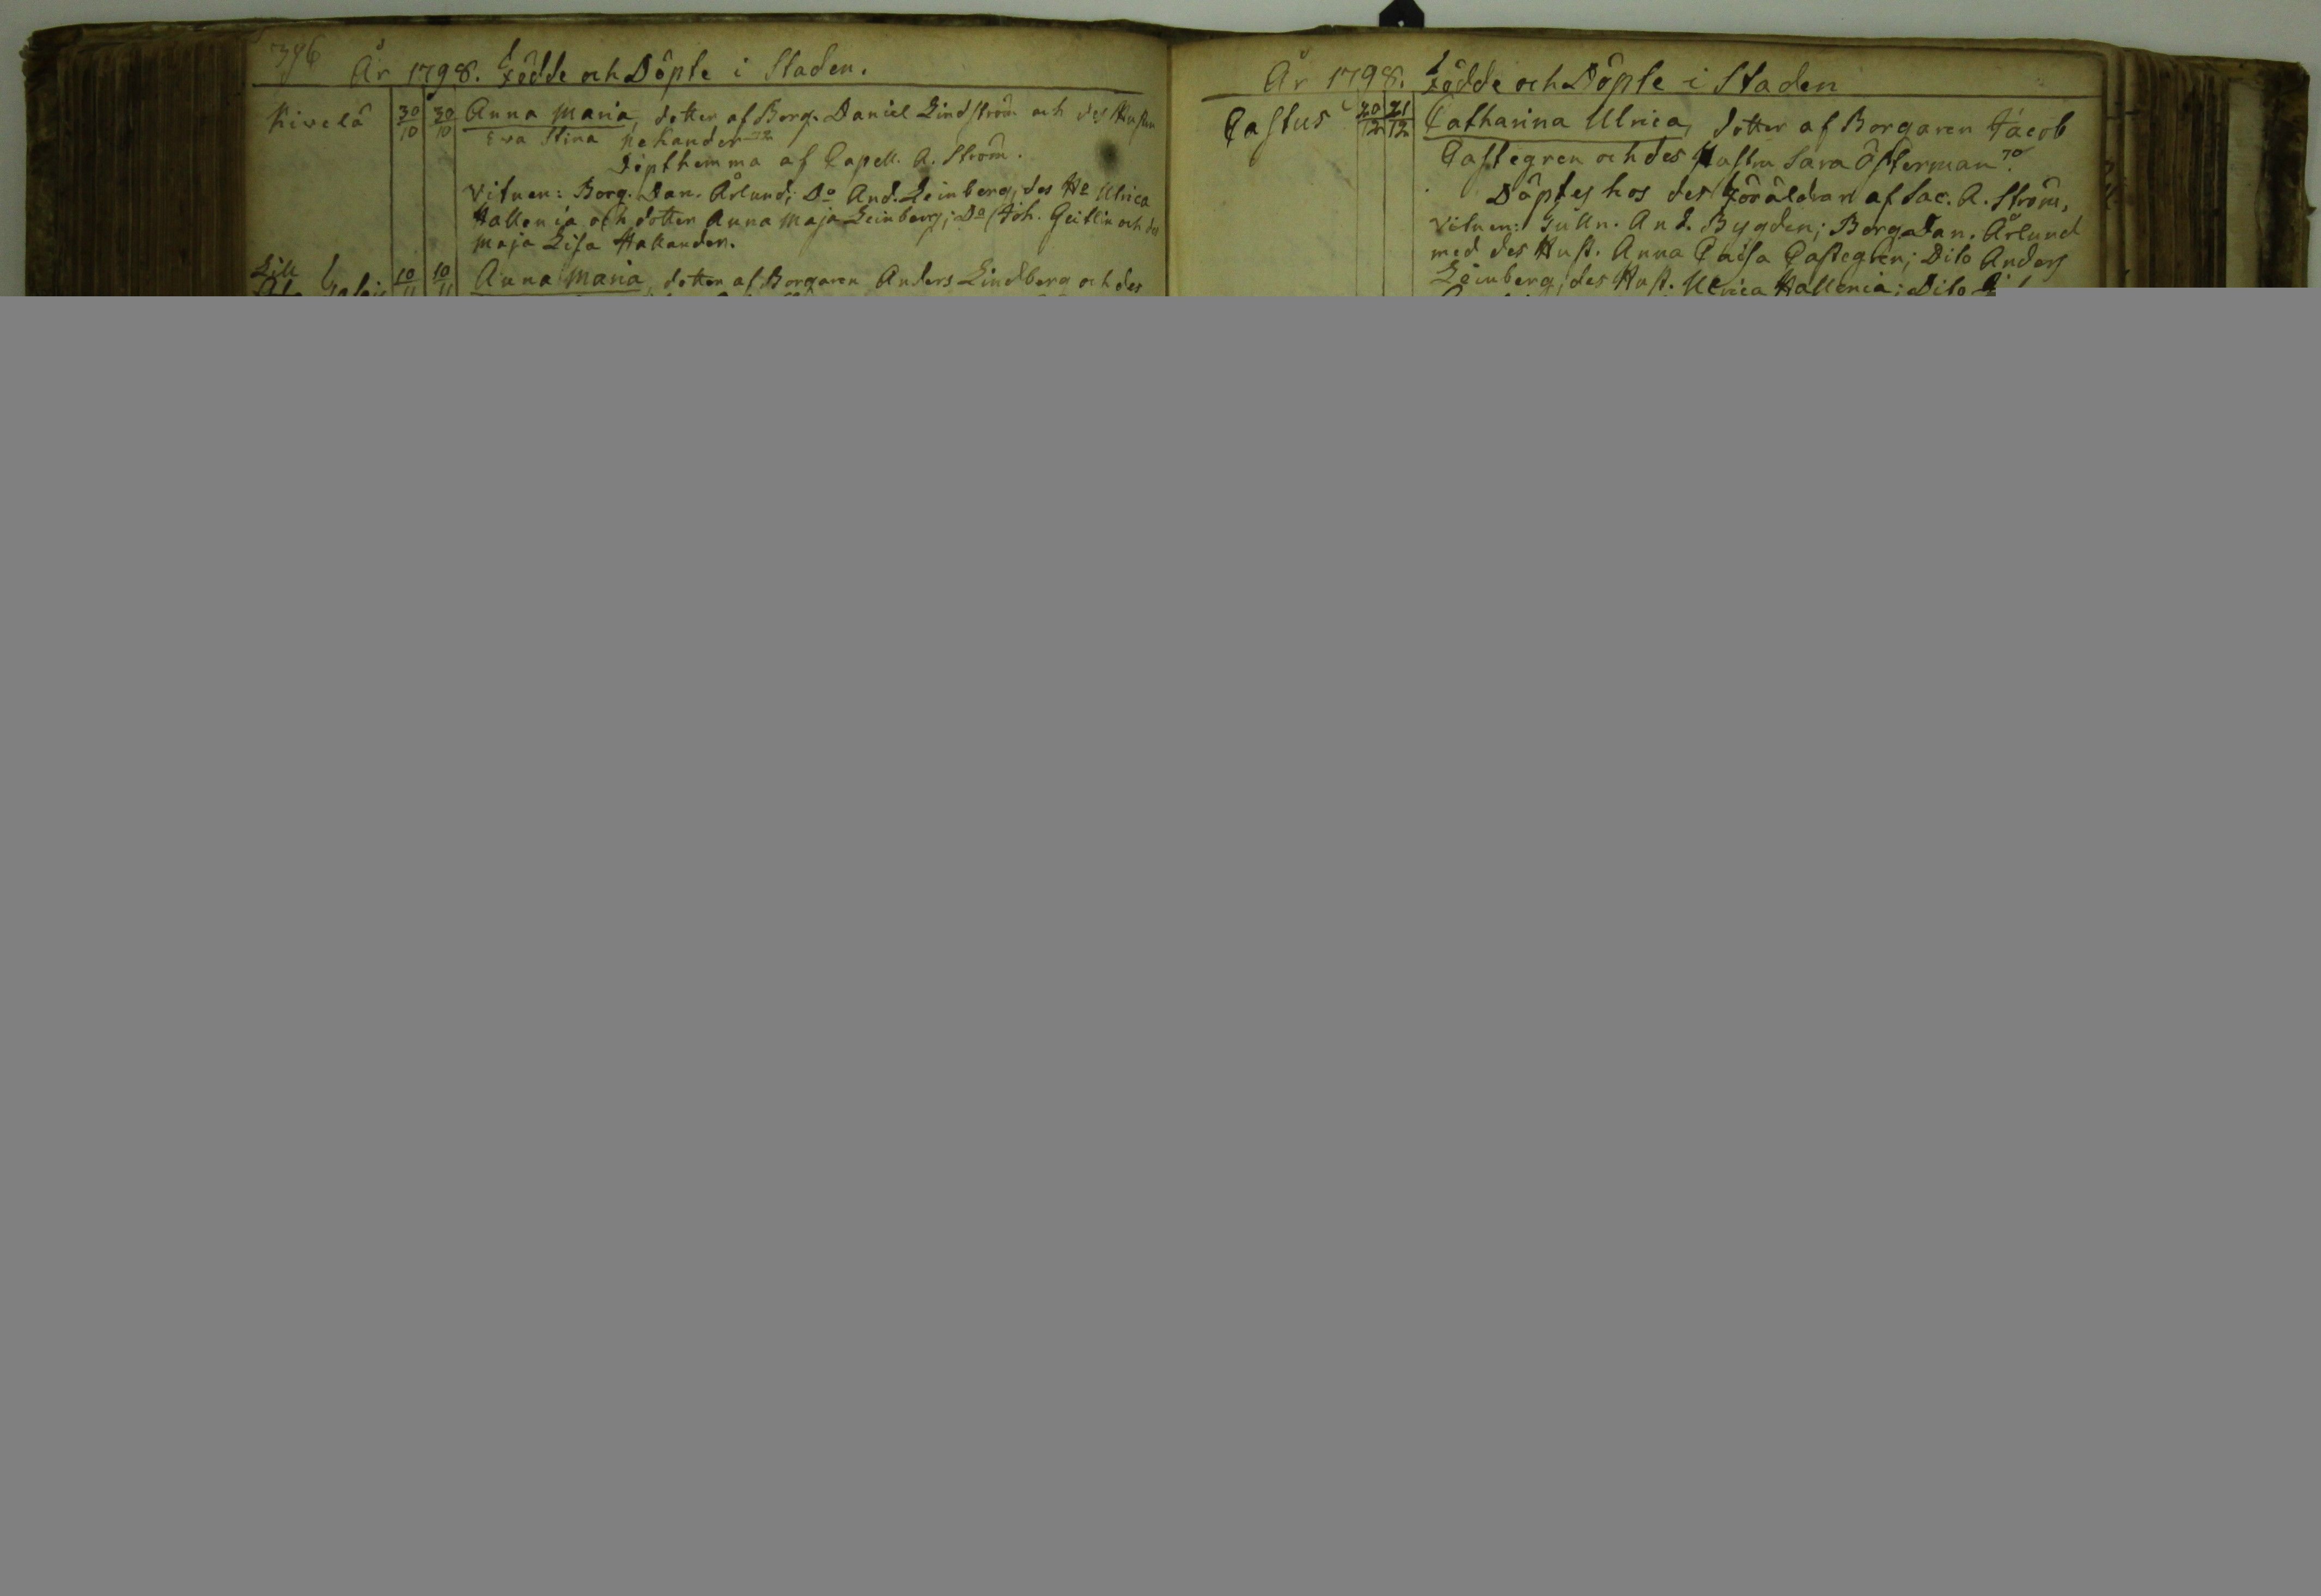 396
År 1798. Födde och Döpte i Staden.
Kivelä 30/10 30/10 Anna Maria, dotter af Borg. Daniel Lindström och des Hustru
Eva Stina Nekander 22
Döpt hemma af Capell. A. Ström.
Vitnen: Borg. Dan. Årlund; Do And. Leinberg, des Ha Ulrica
Hallenia och dotter Anna Maja Leinberg; Do Joh. Geitlin och des
Maja Lisa Hallander.
Lill 10/11 10/11 Anna Maria, dotter af Borgaren Anders Lindberg och des
År 1798. Födde och Döpte i Staden
Castus 20/12 21/12 Catharina Ulrica, dotter af Borgaren Jacob
Castegren och des Hustru Sara Österman 70.
Döptes hos des Föräldrar af Sac. A. Ström,
Vitnen: Tulln. And. Bygden; Borg. Dan. Årlund
med des Hust. Anna Caisa Castegren; Dito Anders
Leinberg, des Hust. Ulrica Hallenia; Dito